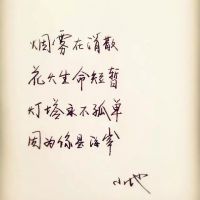 烟雾在消散
花火生命短暫
灯塔永不孤单
因为你是海岸